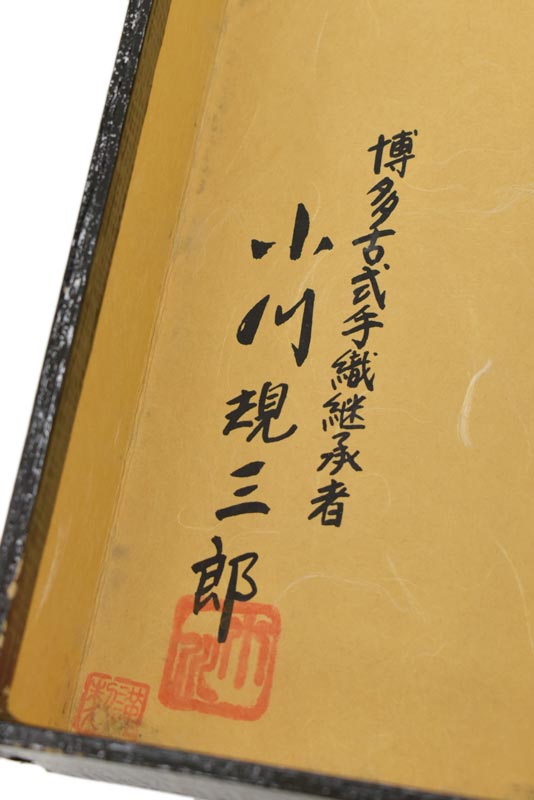 博多古式手織継承者
小川規三郎